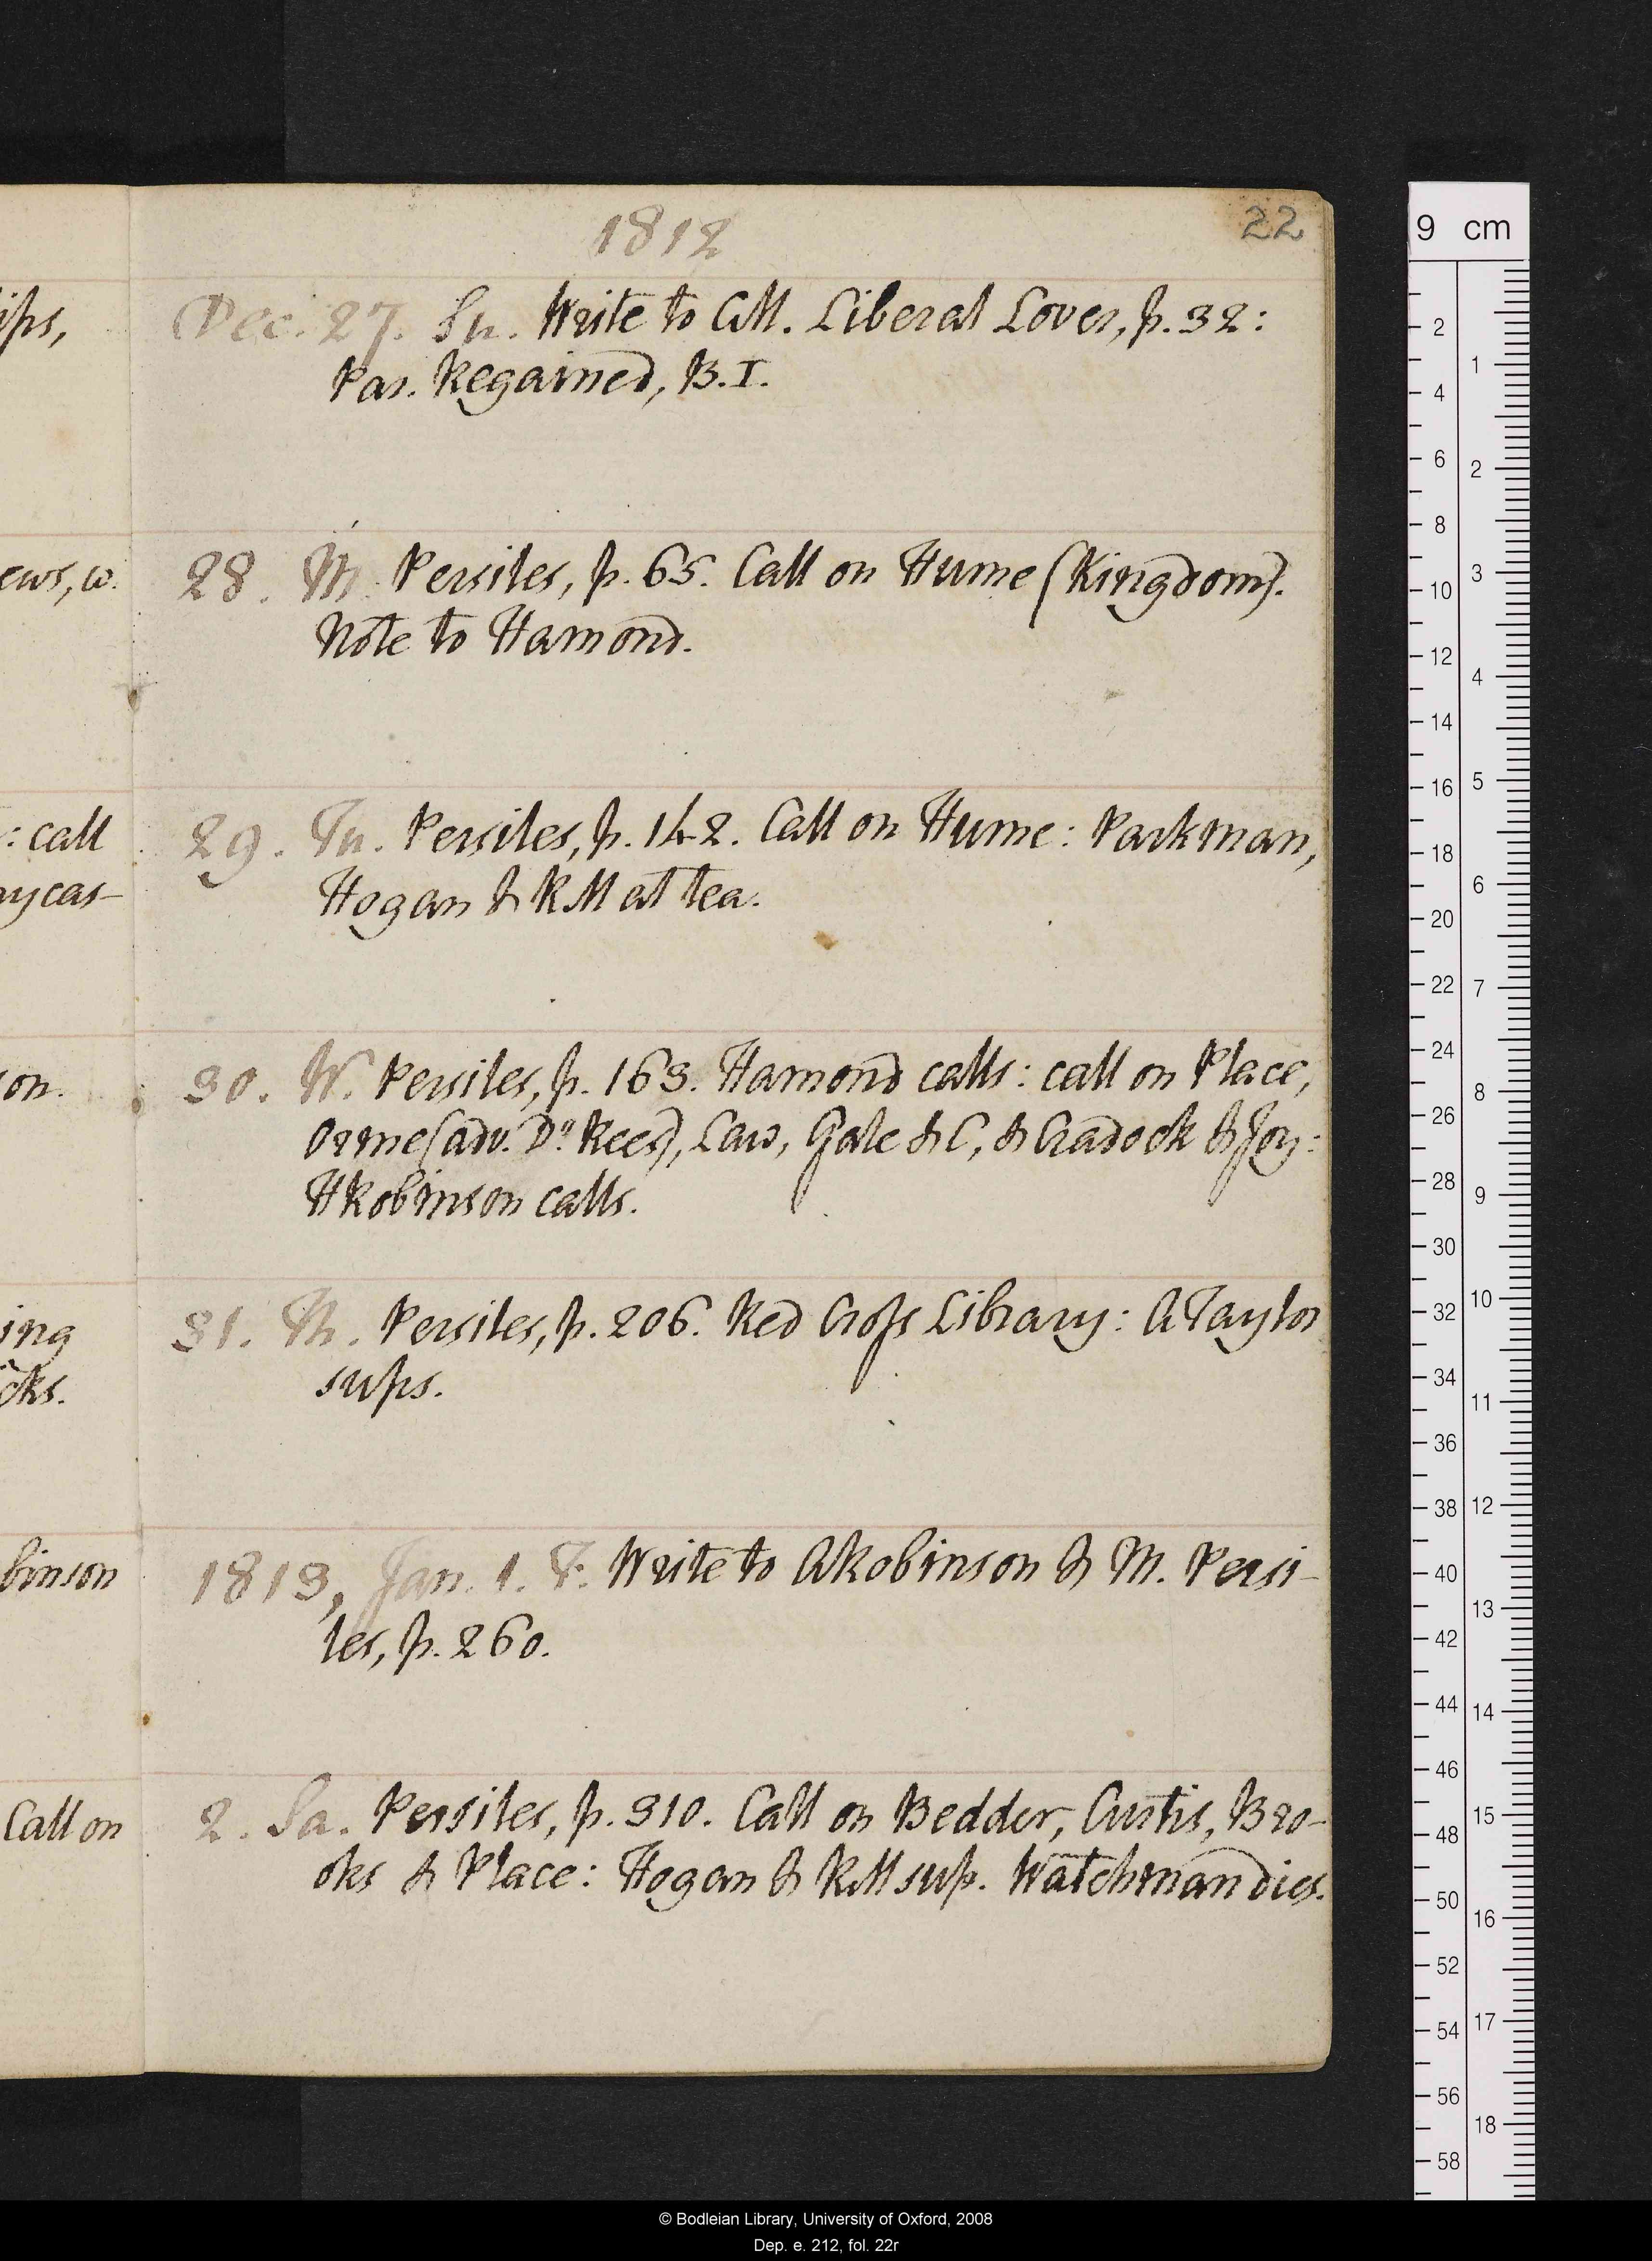 1812
22
Dec. 27. Su. Write to CM. Liberal Lover, p. 32:
Par. Regained, B. I.
28. M. Persiles, p. 65. Call on Hume (Kingdom).
Note to Hamond.
29. Tu. Persiles, p. 142. Call on Hume: Parkman,
Hogan & RM at tea.
30. W. Persiles, p. 163. Hamond calls: call on Place,
Orme (adv. Dr Rees), Law, Gale & C, & Cradock & Joy:
HRobinson calls.
31. Th. Persiles, p. 206. Red Croſs Library: ATaylor
sups.
1813, Jan. 1. F. Write to ARobinson & M. Persi-
les, p. 260.
2. Sa. Persiles, p. 310. Call on Bedder, Curtis, Bro-
oks & Place: Hogan & RM sup. Watchman dies.
ips,
ews, w.
: call
aycas-
son.
ing
cks.
binson
Call on
9 cm
2
4
6
8
10
12
14
16
18
20
22
24
26
28
30
32
34
36
38
40
42
44
46
48
50
52
54
56
58
1
2
3
4
5
6
7
8
9
10
11
12
13
14
15
16
17
18
© Bodleian Library, University of Oxford, 2008
Dep. e. 212, fol. 22r